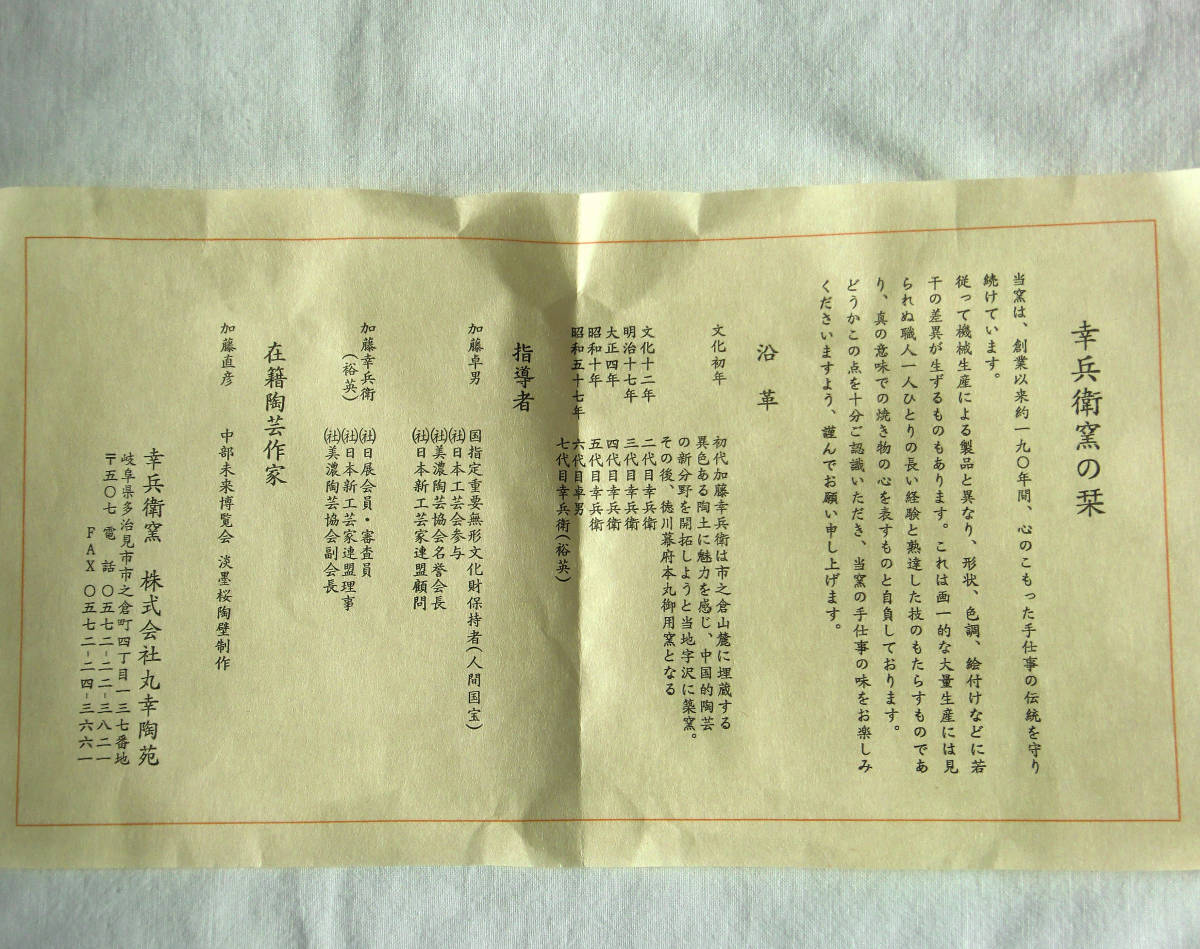 幸兵衛窯の栞
当窯は、創業以来約一九〇年間、心のこもった手仕事の伝統を守り
続けています。
従って機械生産による製品と異なり、形状、色調、絵付けなどに若
干の差異が生ずるものもあります。これは画一的な大量生産には見
られぬ職人一人ひとりの長い経験と熟達した技のもたらすものであ
り、真の意味での焼き物の心を表すものと自負しております。
どうかこの点を十分ご認識いただき、当窯の手仕事の味をお楽しみ
くださいますよう、謹んでお願い申し上げます。
沿革
文化初年 初代加藤幸兵衛は市之倉山麓に埋蔵する
異色ある陶土に魅力を感じ、中国的陶芸
の新分野を開拓しようと当地字沢に築窯。
その後、徳川幕府本丸御用窯となる
文化十二年 二代目幸兵衛
明治十七年 三代目幸兵衛
大正四年 四代目幸兵衛
昭和十年 五代目幸兵衛
昭和五十七年 六代目卓男
七代目幸兵衛(裕英)
指導者
加藤卓男 国指定重要無形文化財保持者(人間国宝)
㈳日本工芸会参与
㈳美濃陶芸協会名誉会長
㈳日本新工芸家連盟顧問
加藤幸兵衛 ㈳日展会員・審査員
(裕英) ㈳日本新工芸家連盟理事
㈳美濃陶芸協会副会長
在籍陶芸作家
加藤直彦 中部未来博覧会 淡墨桜陶壁制作
幸兵衛窯 株式会社丸幸陶苑
岐阜県多治見市市之倉町四丁目一三七番地
〒五〇七 電話 〇五七二-二二-三八二一
FAX 〇五七二-二四-三六六一